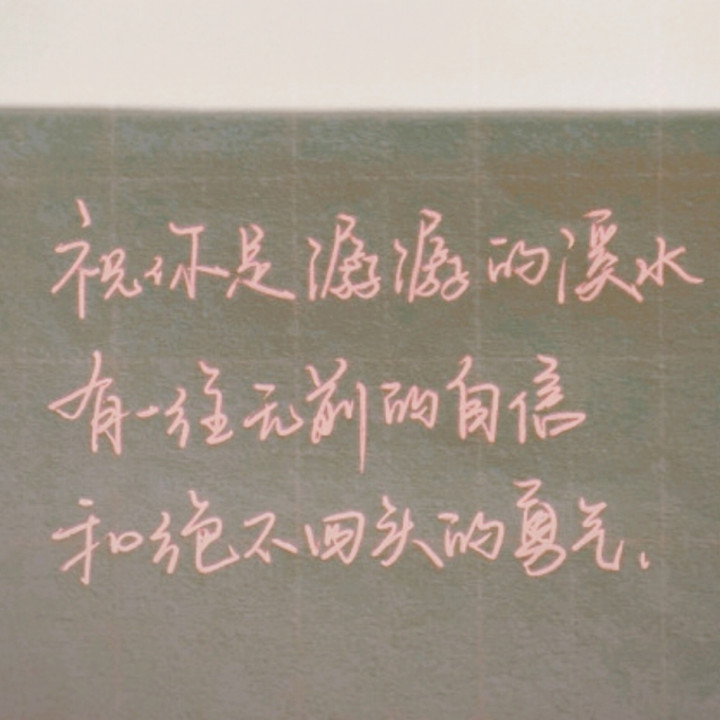 祝你是潺潺的溪水
有一往无前的自信
和绝不回头的勇气.